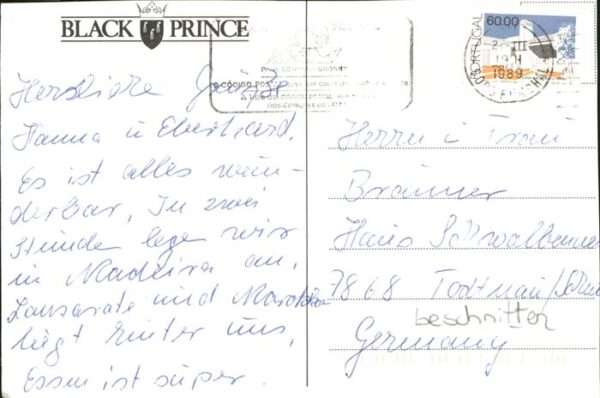 BLACK PRINCE
Herzliche Grüße
Hanna u Eberhard.
Es ist alles wun-
derbar. In zwei
Stunde legen wir
in Madeira an.
Lanzarote und Marokko
liegt hinter uns.
Essen ist super.
PORTUGAL
60.00
1989
Herrn u Frau
Haus
7868 Todtnau
beschnitten
Germany